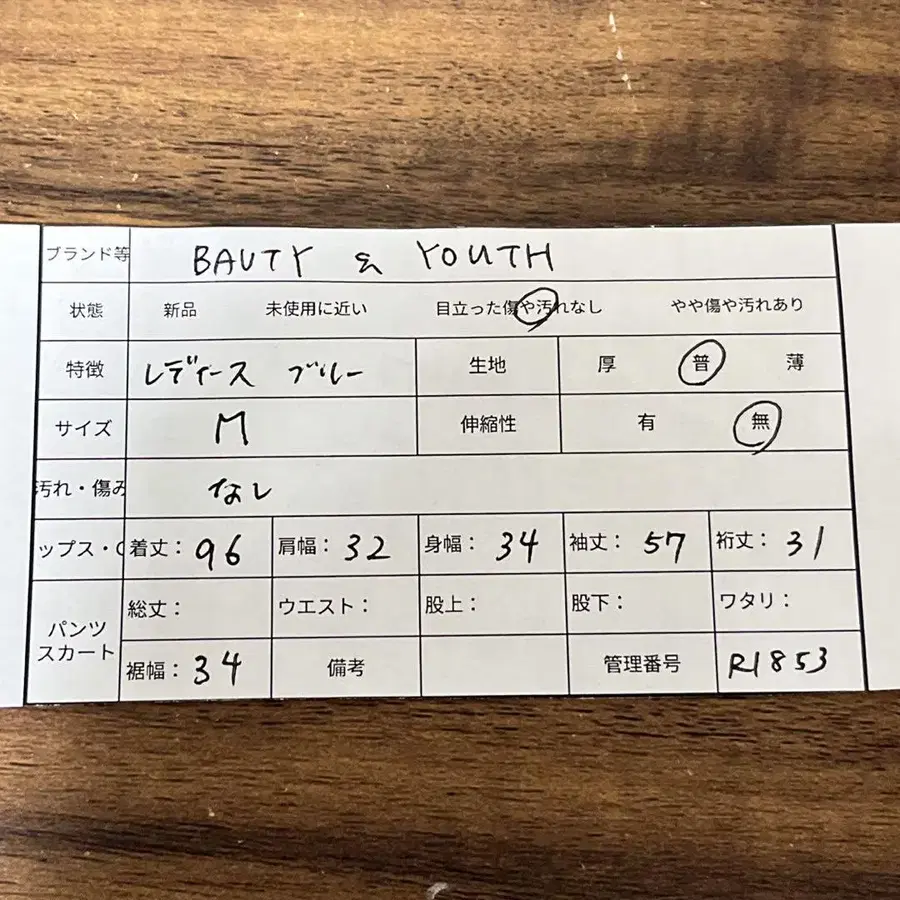 ブランド等 BAUTY & YOUTH
状態 新品 未使用に近い 目立った傷や汚れなし やや傷や汚れあり
特徴 レディース ブルー 生地 厚 普 薄
サイズ M 伸縮性 有 無
汚れ・傷み なし
ップス・ 着丈: 96 肩幅: 32 身幅: 34 袖丈: 57 裄丈: 31
パンツ スカート 総丈: ウエスト: 股上: 股下: ワタリ:
裾幅: 34 備考 管理番号 R1853